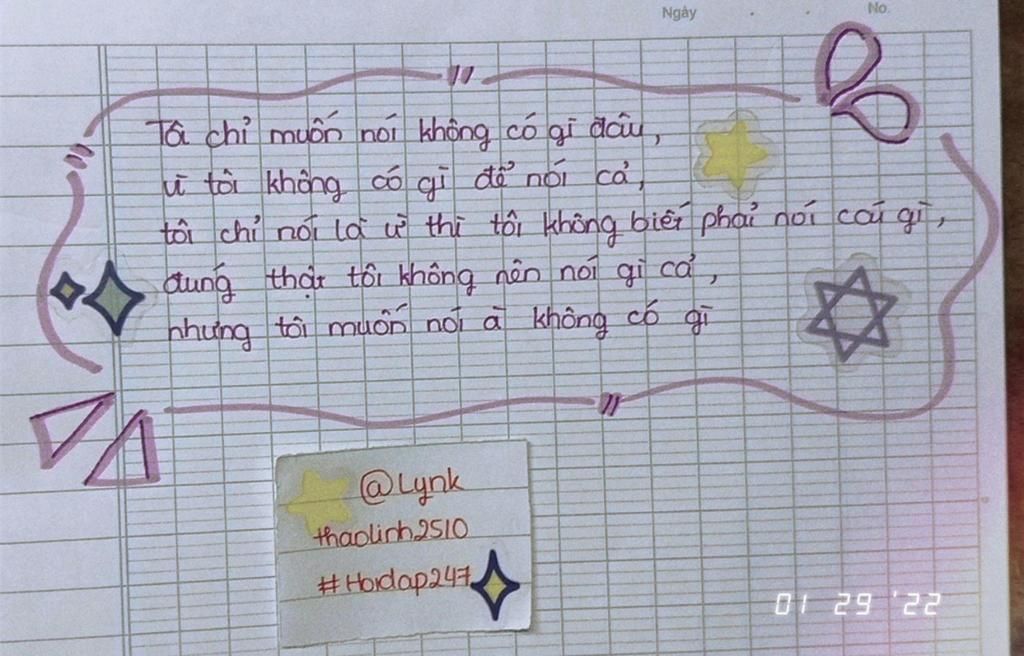 Ngày
No.
Tôi chỉ muốn nói không có gì đâu,
vì tôi không có gì để nói cả,
tôi chỉ nói là ừ thì tôi không biết phải nói cái gì,
đúng thật tôi không nên nói gì cả,
nhưng tôi muốn nói à không có gì
@Lynk
thaolinh2510
#Hoidap247
01 29 '22